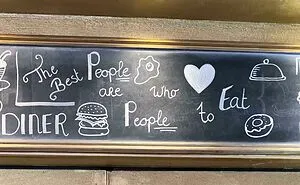 The Best People are who Eat
People to
DINER